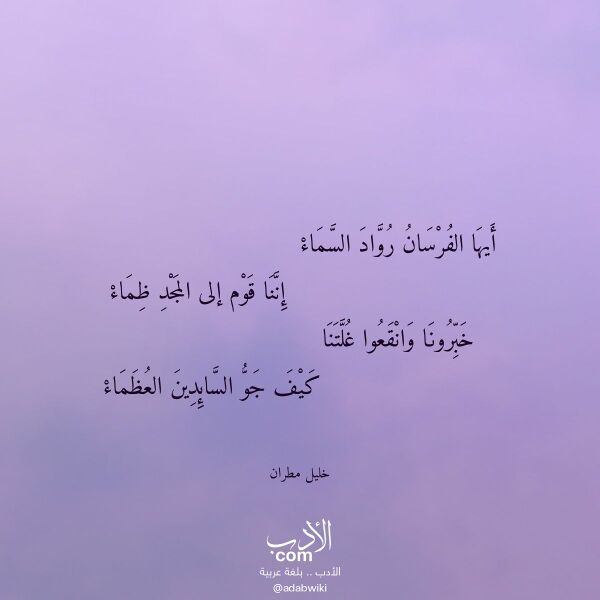 أَيهَا الفُرْسَانُ رُوَّادَ السَّمَاءْ
إِنَّنَا قَوْم إلى المَجْدِ ظِمَاءْ
خَبِّرُونَا وَانْقَعُوا غُلَّتَنَا
كَيْفَ جَوُّ السَّايِدِينَ العُظَمَاءْ
خليل مطران
الأدب
.com
الأدب .. بلغة عربية
@adabwiki